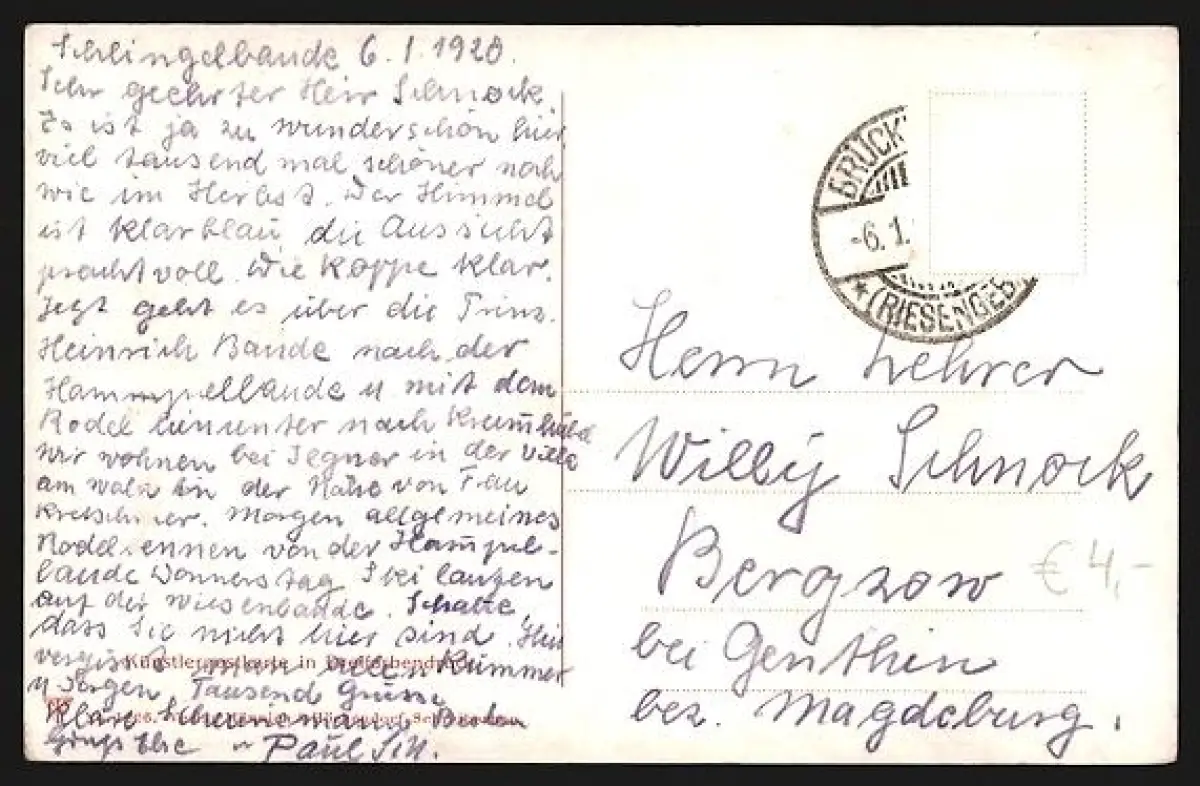 Schlingelbaude 6.1.1920.
Sehr geehrter Herr Schnock.
Es ist ja zu wunderschön hier,
viel tausend mal schöner noch
wie im Herbst. Der Himmel
ist klarblau, die Aussicht
prachtvoll. Die Koppe klar.
Jetzt geht es über die Prinz.
Heinrich Baude nach der
Hampelbaude u mit dem
Rodel hinunter nach Krummhübel
Wir wohnen bei in der Villa
am Wald in der Nähe von Frau
Kretschmer. Morgen allgemeines
Rodelrennen von der Hampel-
baude Donnerstag Skilaufen
auf der Wiesenbaude. Schade,
dass Sie nicht hier sind. Hier
vergisst man allen Kummer
u Sorgen. Tausend Grüsse
Künstlerpostkarte in
Klare
Gruss Else Paul
BRÜCK
-6.1.
* (RIESENGEB
Herrn Lehrer
Willy Schnock
Bergzow
€ 4,-
bei Genthin
bez. Magdeburg.